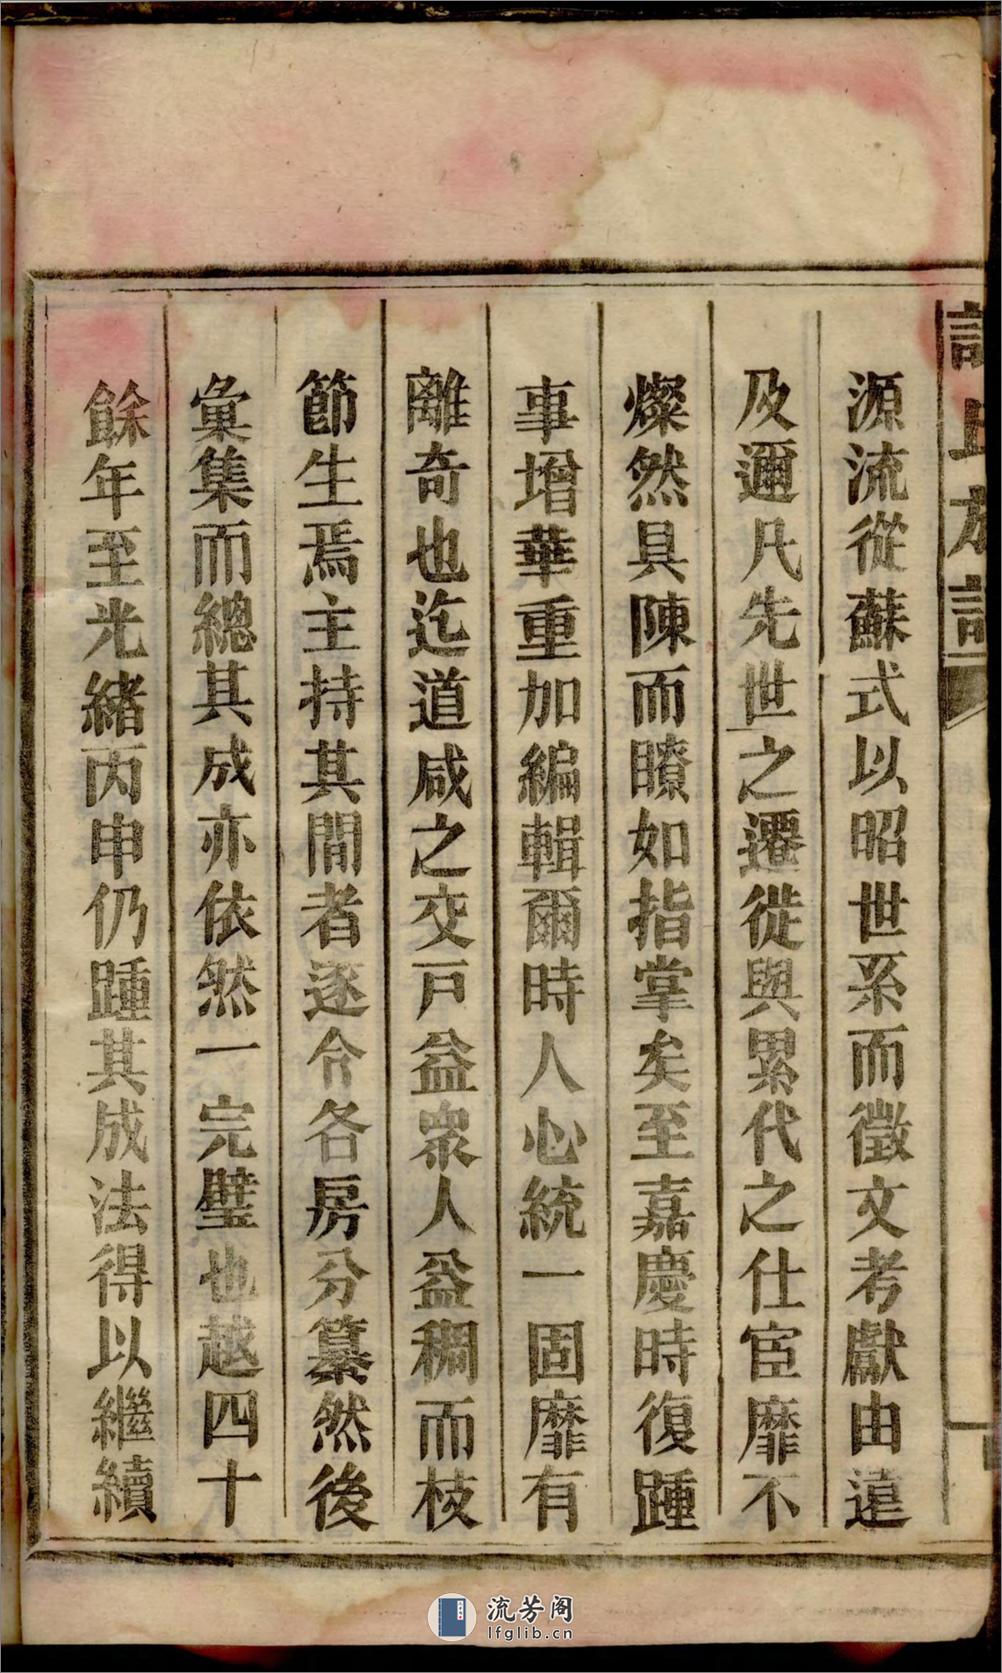 氏族譜
源流從蘇式以昭世系而徵文考獻由遠
及邇凡先世之遷徙與累代之仕宦靡不
燦然具陳而瞭如指掌矣至嘉慶時復踵
事增華重加編輯爾時人心統一固靡有
離奇也迄道咸之交戸益衆人益稠而枝
節生焉主持其間者逐令各房分纂然後
彙集而總其成亦依然一完璧也越四十
餘年至光緒丙申仍踵其成法得以繼續
流芳阁
lfglib.cn